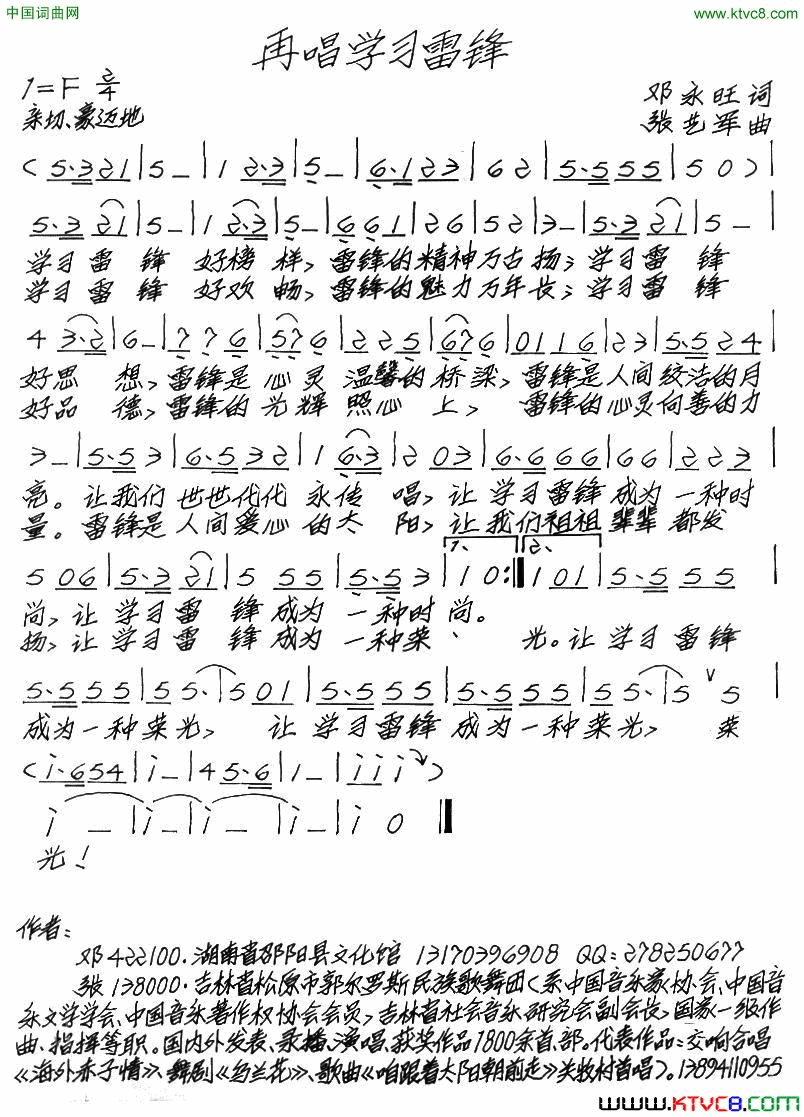 中国词曲网
www.ktvc8.com
再唱学习雷锋
1=F 2/4
邓永旺词
亲切、豪迈地
张艺军曲
(5·3 21|5 –|1 2·3|5 –|6·1 23|6 2|5·5 55|5 0)|
5·3 21|5 –|1 2·3|5 –|6 6 1|2 6|5 2|3 –|5·3 21|5 –|
学习雷 锋 好榜 样,雷锋的精神万古扬;学习雷 锋
学习雷 锋 好欢 畅,雷锋的魅力万年长;学习雷 锋
4 3·2|6 –|7 7 6|5 7 6|2 2 5|6 7 6|0 1 1 6|2 3|5·5 2 4|
好思 想,雷锋是 心灵 温馨的桥梁,雷锋是人间皎洁的月
好品 德,雷锋的光辉 照心 上, 雷锋的心灵向善的力
3 –|5·5 3|6·5 3 2|1 6·3|2 0 3|6·6 6 6|6 6|2 2 3|
亮。让我们 世世代代 永传 唱,让 学习雷锋成为 一种时
量。雷锋是人间爱心的太 阳,让我们祖祖辈辈 都发
5 0 6|5·3 21|5 5 5|5·5 3|1. 1 0:‖2. 1 0 1|5·5 5 5|
尚,让 学习雷 锋成为 一种时尚。
扬,让 学习雷 锋成为 一种荣、 光。让 学习雷锋
5·5 5 5|5 5·|5 0 1|5·5 5 5|5·5 5 5|5 5·|5 ∨ 5|
成为一种荣光, 让 学习雷锋成为一种荣光, 荣
(i·6 5 4|i –|4 5·6|1 –|i i i)
i –|i –|i –|i –|i 0‖
光!
作者:
邓422100.湖南省邵阳县文化馆 13170396908 QQ:278250677
张138000.吉林省松原市郭尔罗斯民族歌舞团(系中国音乐家协会、中国音
乐文学学会、中国音乐著作权协会会员,吉林省社会音乐研究会副会长,国家一级作
曲、指挥等职。国内外发表、录播、演唱、获奖作品1800余首、部。代表作品:交响合唱
《海外赤子情》、舞剧《乌兰花》、歌曲《咱跟着太阳朝前走》关牧村首唱)。13894110955
www.KTVC8.COM